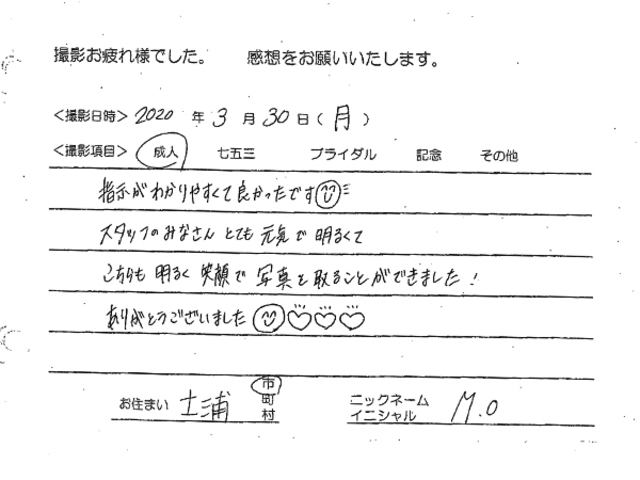 撮影お疲れ様でした。 感想をお願いいたします。
＜撮影日時＞ 2020 年 3 月 30 日 ( 月 )
＜撮影項目＞ 成人 七五三 ブライダル 記念 その他
指示がわかりやすくて良かったです
スタッフのみなさん とても 元気で 明るくて
こちらも 明るく 笑顔で 写真を取ることができました！
ありがとうございました
お住まい 土浦 市 町 村
ニックネーム イニシャル M.O